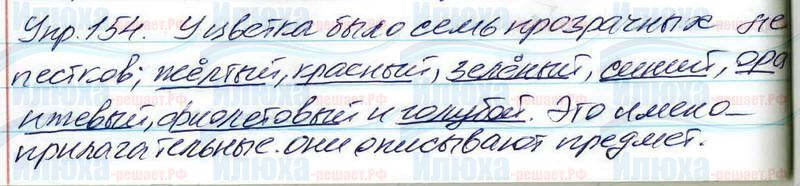 Упр. 154. У цветка было семь прозрачных ле
пестков; жёлтый, красный, зелёный, синий, ора
нжевый, фиолетовый и голубой. Это имено-
прилагательные. они описывают предмет.
Илюха-решает.РФ